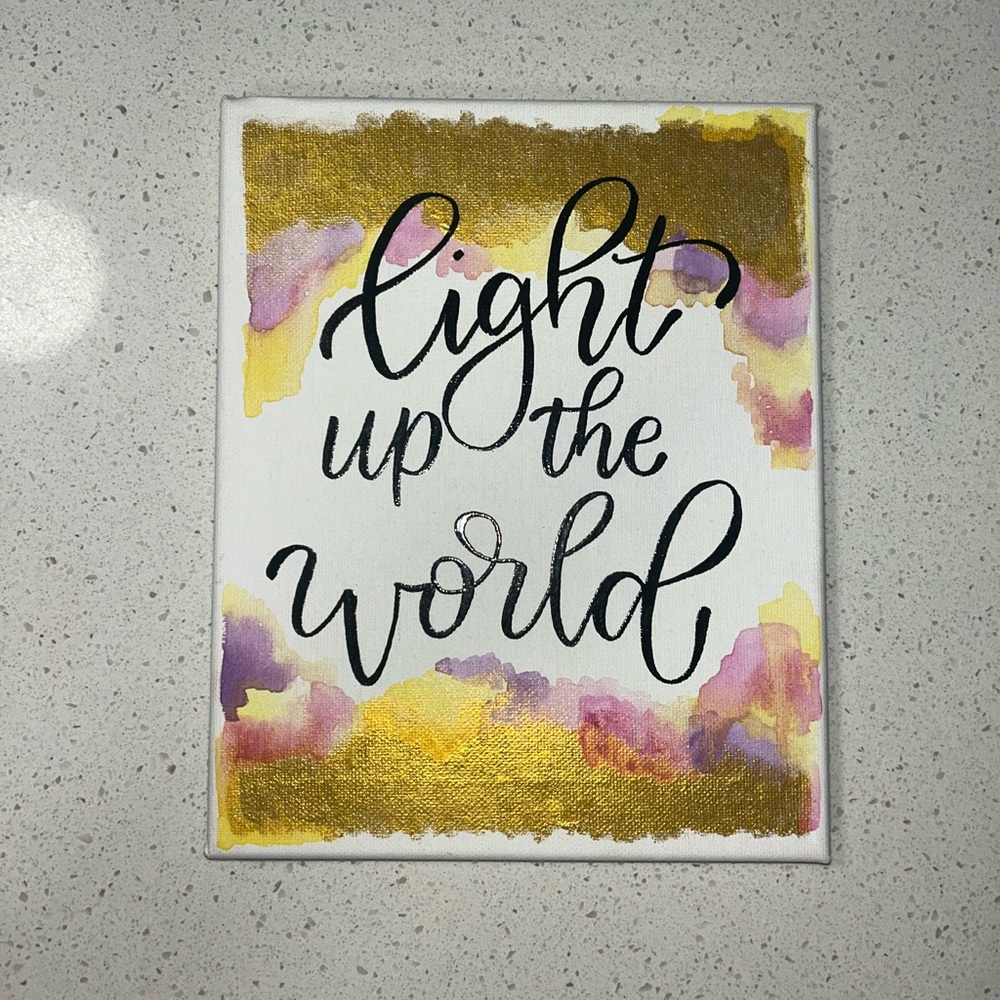 light
up the
world